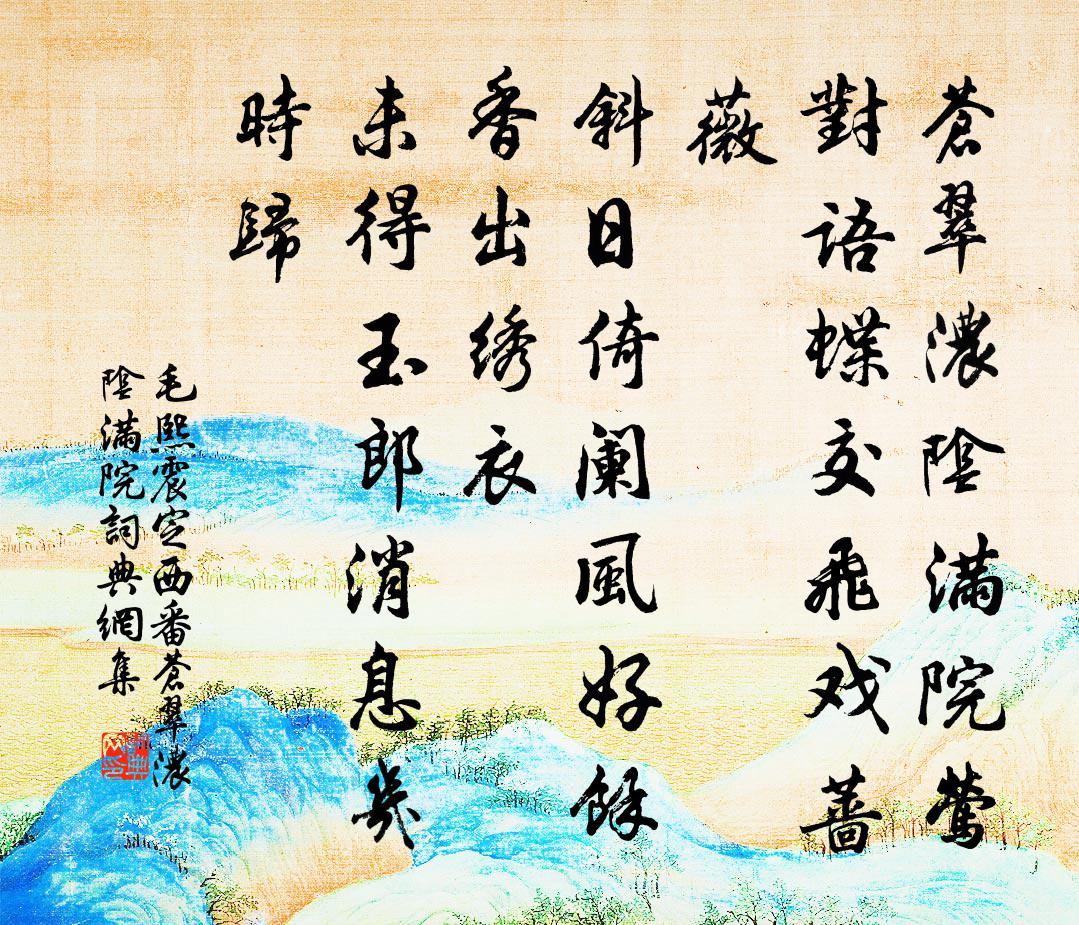 蒼翠濃陰滿院鶯
對語蝶交飛戏薔
薇
斜日倚阑風好餘
香出绣衣
未得玉郎消息幾
時歸
毛熙震定西番蒼翠濃
陰滿院詞典網集